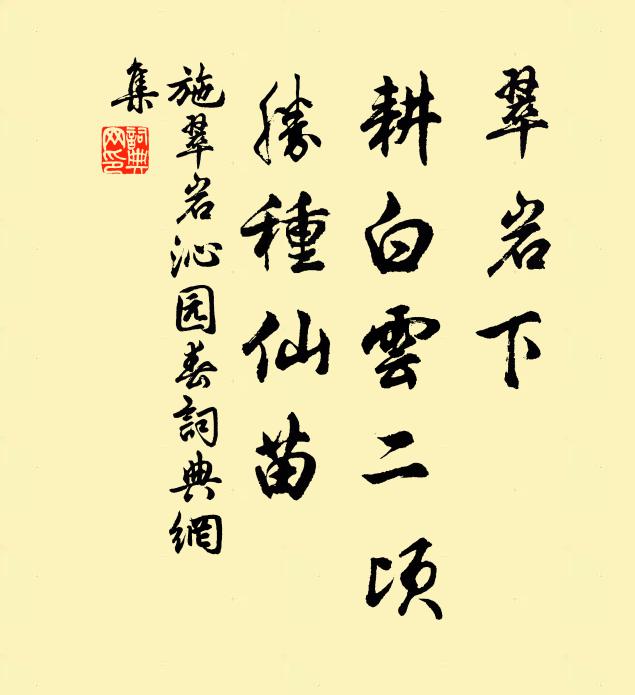 翠岩下
耕白雲二頃
勝種仙苗
施翠岩沁园春詞典網
集
詞典网印